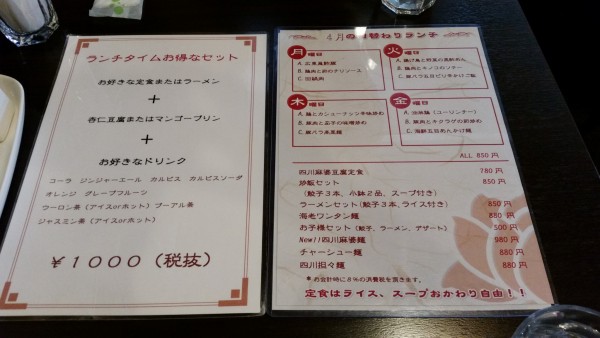 ランチタイムお得なセット
お好きな定食またはラーメン
＋
杏仁豆腐またはマンゴープリン
＋
お好きなドリンク
コーラ ジンジャーエール カルピス カルピスソーダ
オレンジ グレープフルーツ
ウーロン茶（アイスorホット）プーアル茶
ジャスミン茶（アイスorホット）
￥１０００（税抜）
4月の日替わりランチ
月曜日
C. 回鍋肉
火曜日
木曜日
B. 豚肉と茄子の味噌炒め
金曜日
A. 油淋鶏（ユーリンチー）
B. 豚肉とキクラゲの卵炒め
C. 海鮮五目あんかけ麺
ALL 850円
四川麻婆豆腐定食 780円
炒飯セット
（餃子３本、小鉢２品、スープ付き） 850円
ラーメンセット（餃子３本、ライス付き） 850円
海老ワンタン麺 880円
お子様セット（餃子、ラーメン、デザート） 500円
New!!四川麻婆麺 980円
チャーシュー麺 880円
四川担々麺 880円
＊お会計時に８％の消費税を頂きます。
定食はライス、スープおかわり自由！！